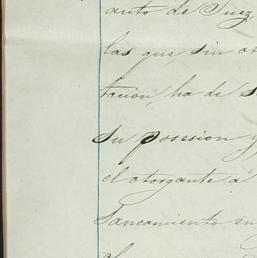 auto de Juez
las que, sin o
tacion, ha de s
su posesion y
el otorgante á
Saneamiento en